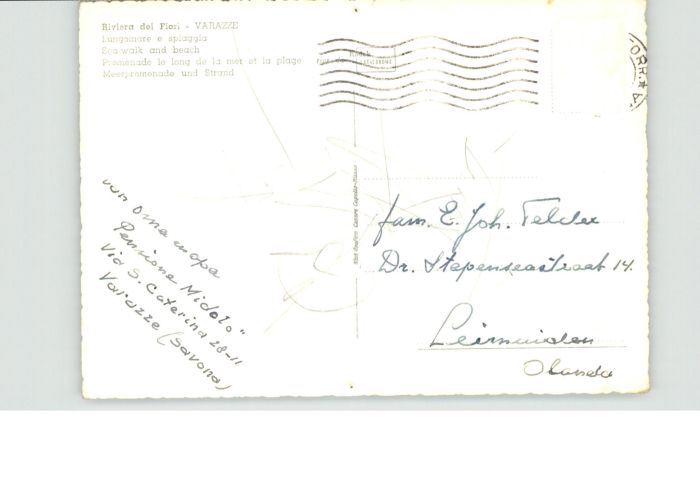 Riviera dei Fiori - VARAZZE
Lungamare e spiaggia
Sea-walk and beach
Promenade le long de la mer et la plage
Meerpromenade und Strand
van Oma en opa
Pensione Midolo"
Via S. Caterina 28-11
Varazze (Savona)
fam. E. Joh. Felder
Dr. Stapenseastraat 14.
Leimuiden
Olanda